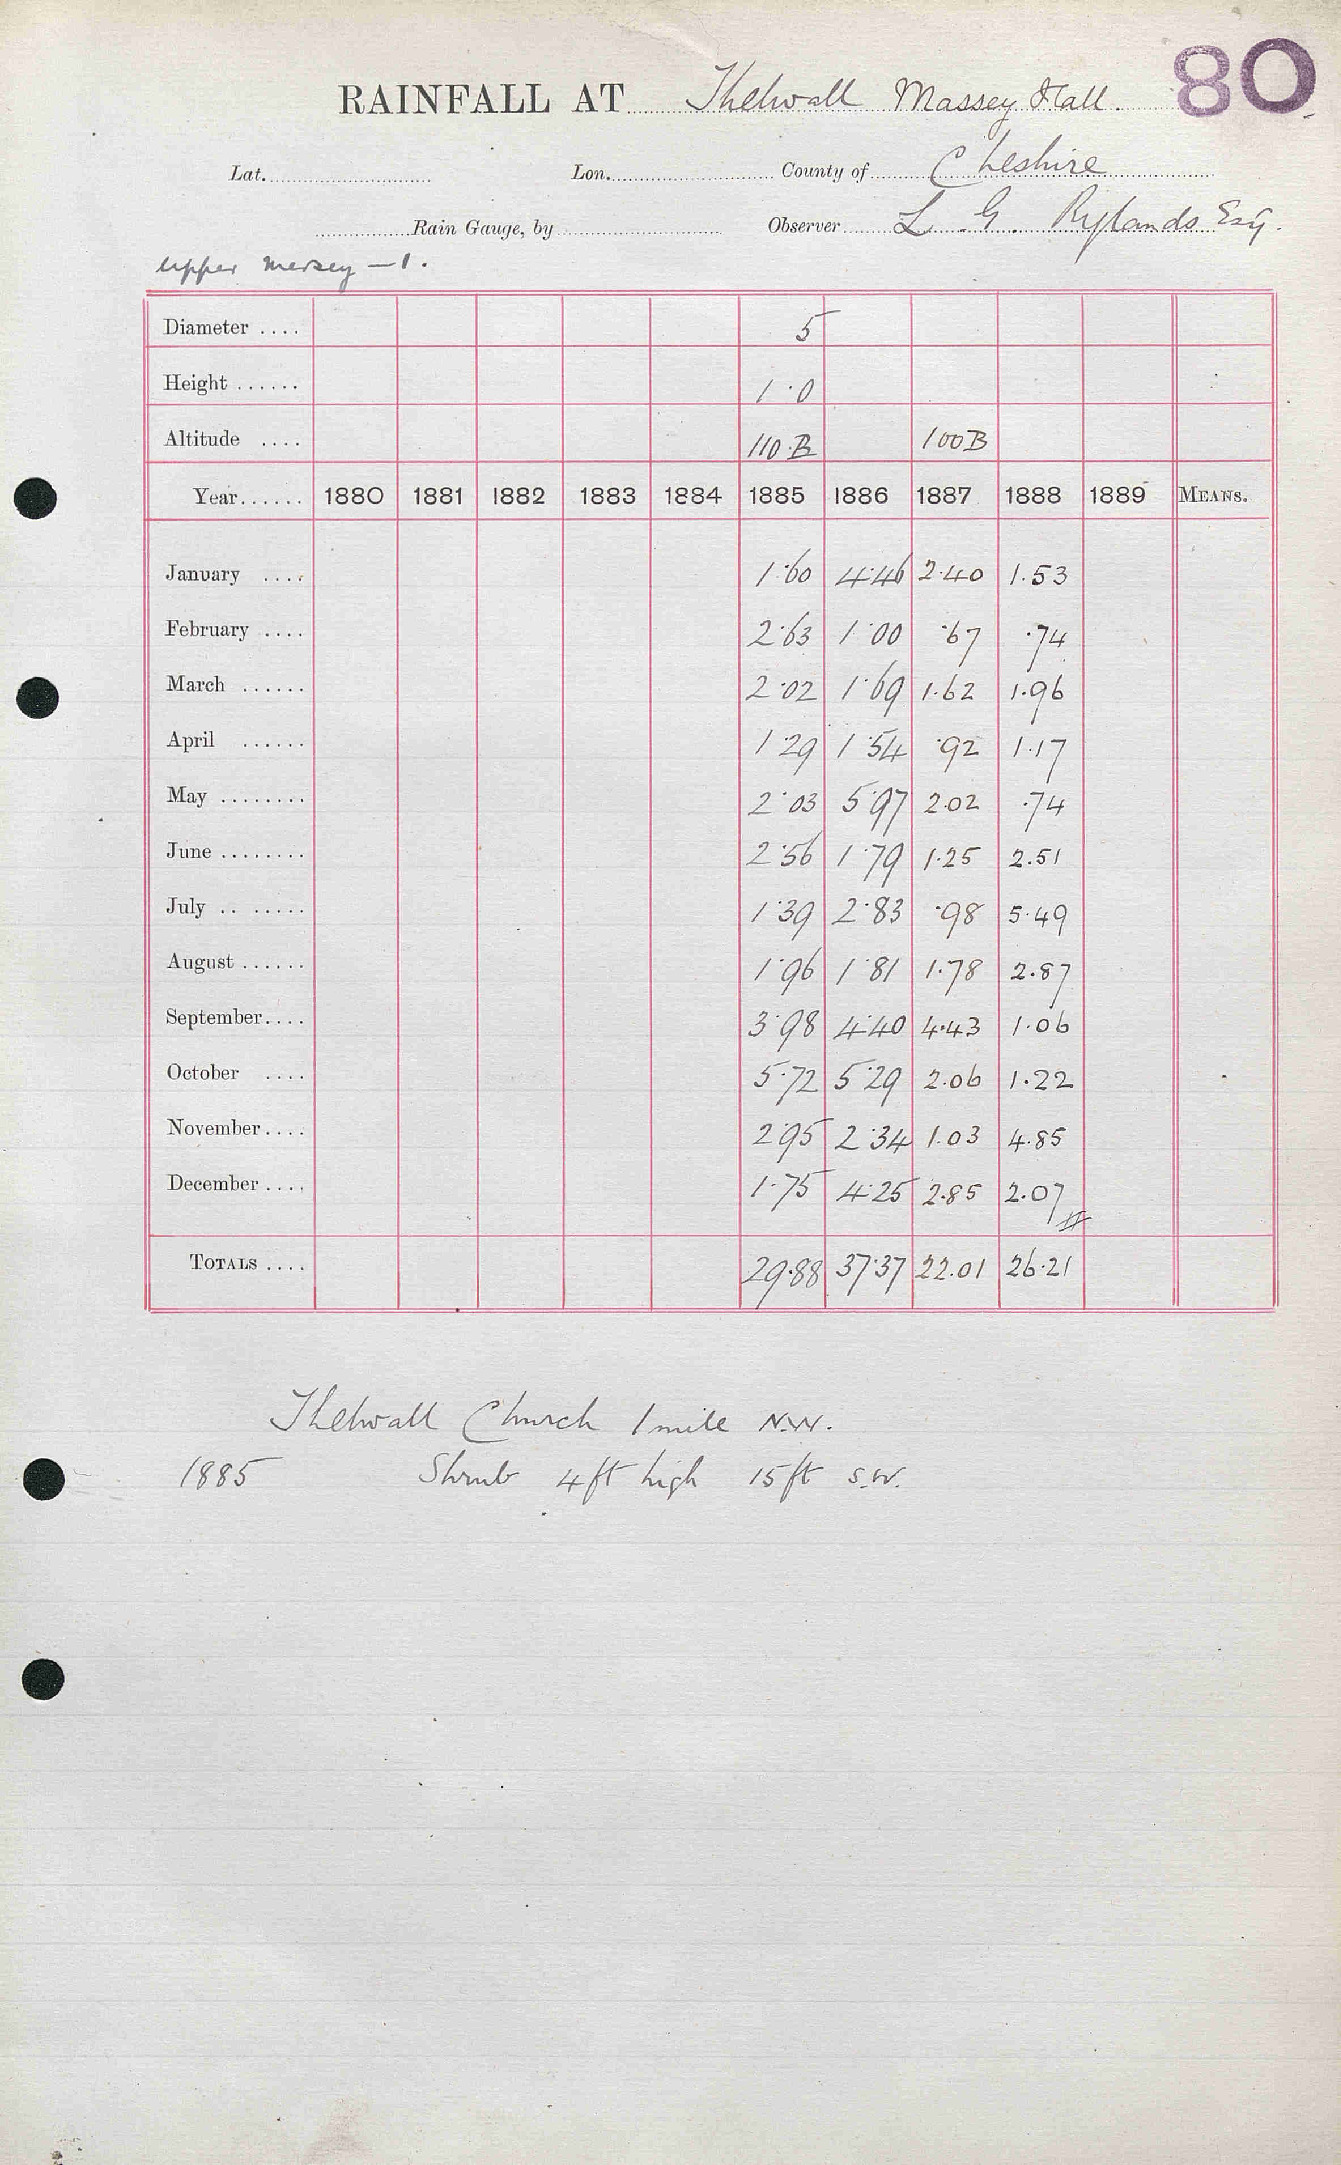 RAINFALL AT Thelwall Massey Hall. 80
Lat. Lon. County of Cheshire
Rain Gauge, by Observer L. G. Rylands Esq.
Upper Mersey — 1.
Diameter .... 5
Height ...... 1·0
Altitude .... 110·B 100B
Year...... 1880 1881 1882 1883 1884 1885 1886 1887 1888 1889 MEANS.
January .... 1·60 4·46 2·40 1.53
February .... 2·63 1·00 ·67 ·74
March ...... 2·02 1·69 1.62 1.96
April ...... 1·29 1·54 ·92 1.17
May ........ 2·03 5·97 2.02 ·74
June ........ 2·56 1·79 1.25 2.51
July .. ...... 1·39 2·83 ·98 5.49
August ...... 1·96 1·81 1.78 2.87
September.... 3·98 4·40 4.43 1.06
October .... 5·72 5·29 2.06 1.22
November.... 2·95 2·34 1.03 4.85
December.... 1·75 4·25 2.85 2.07
TOTALS .... 29·88 37·37 22.01 26·21
Thelwall Church 1 mile N.W.
1885 Shrub 4ft high 15ft S.W.